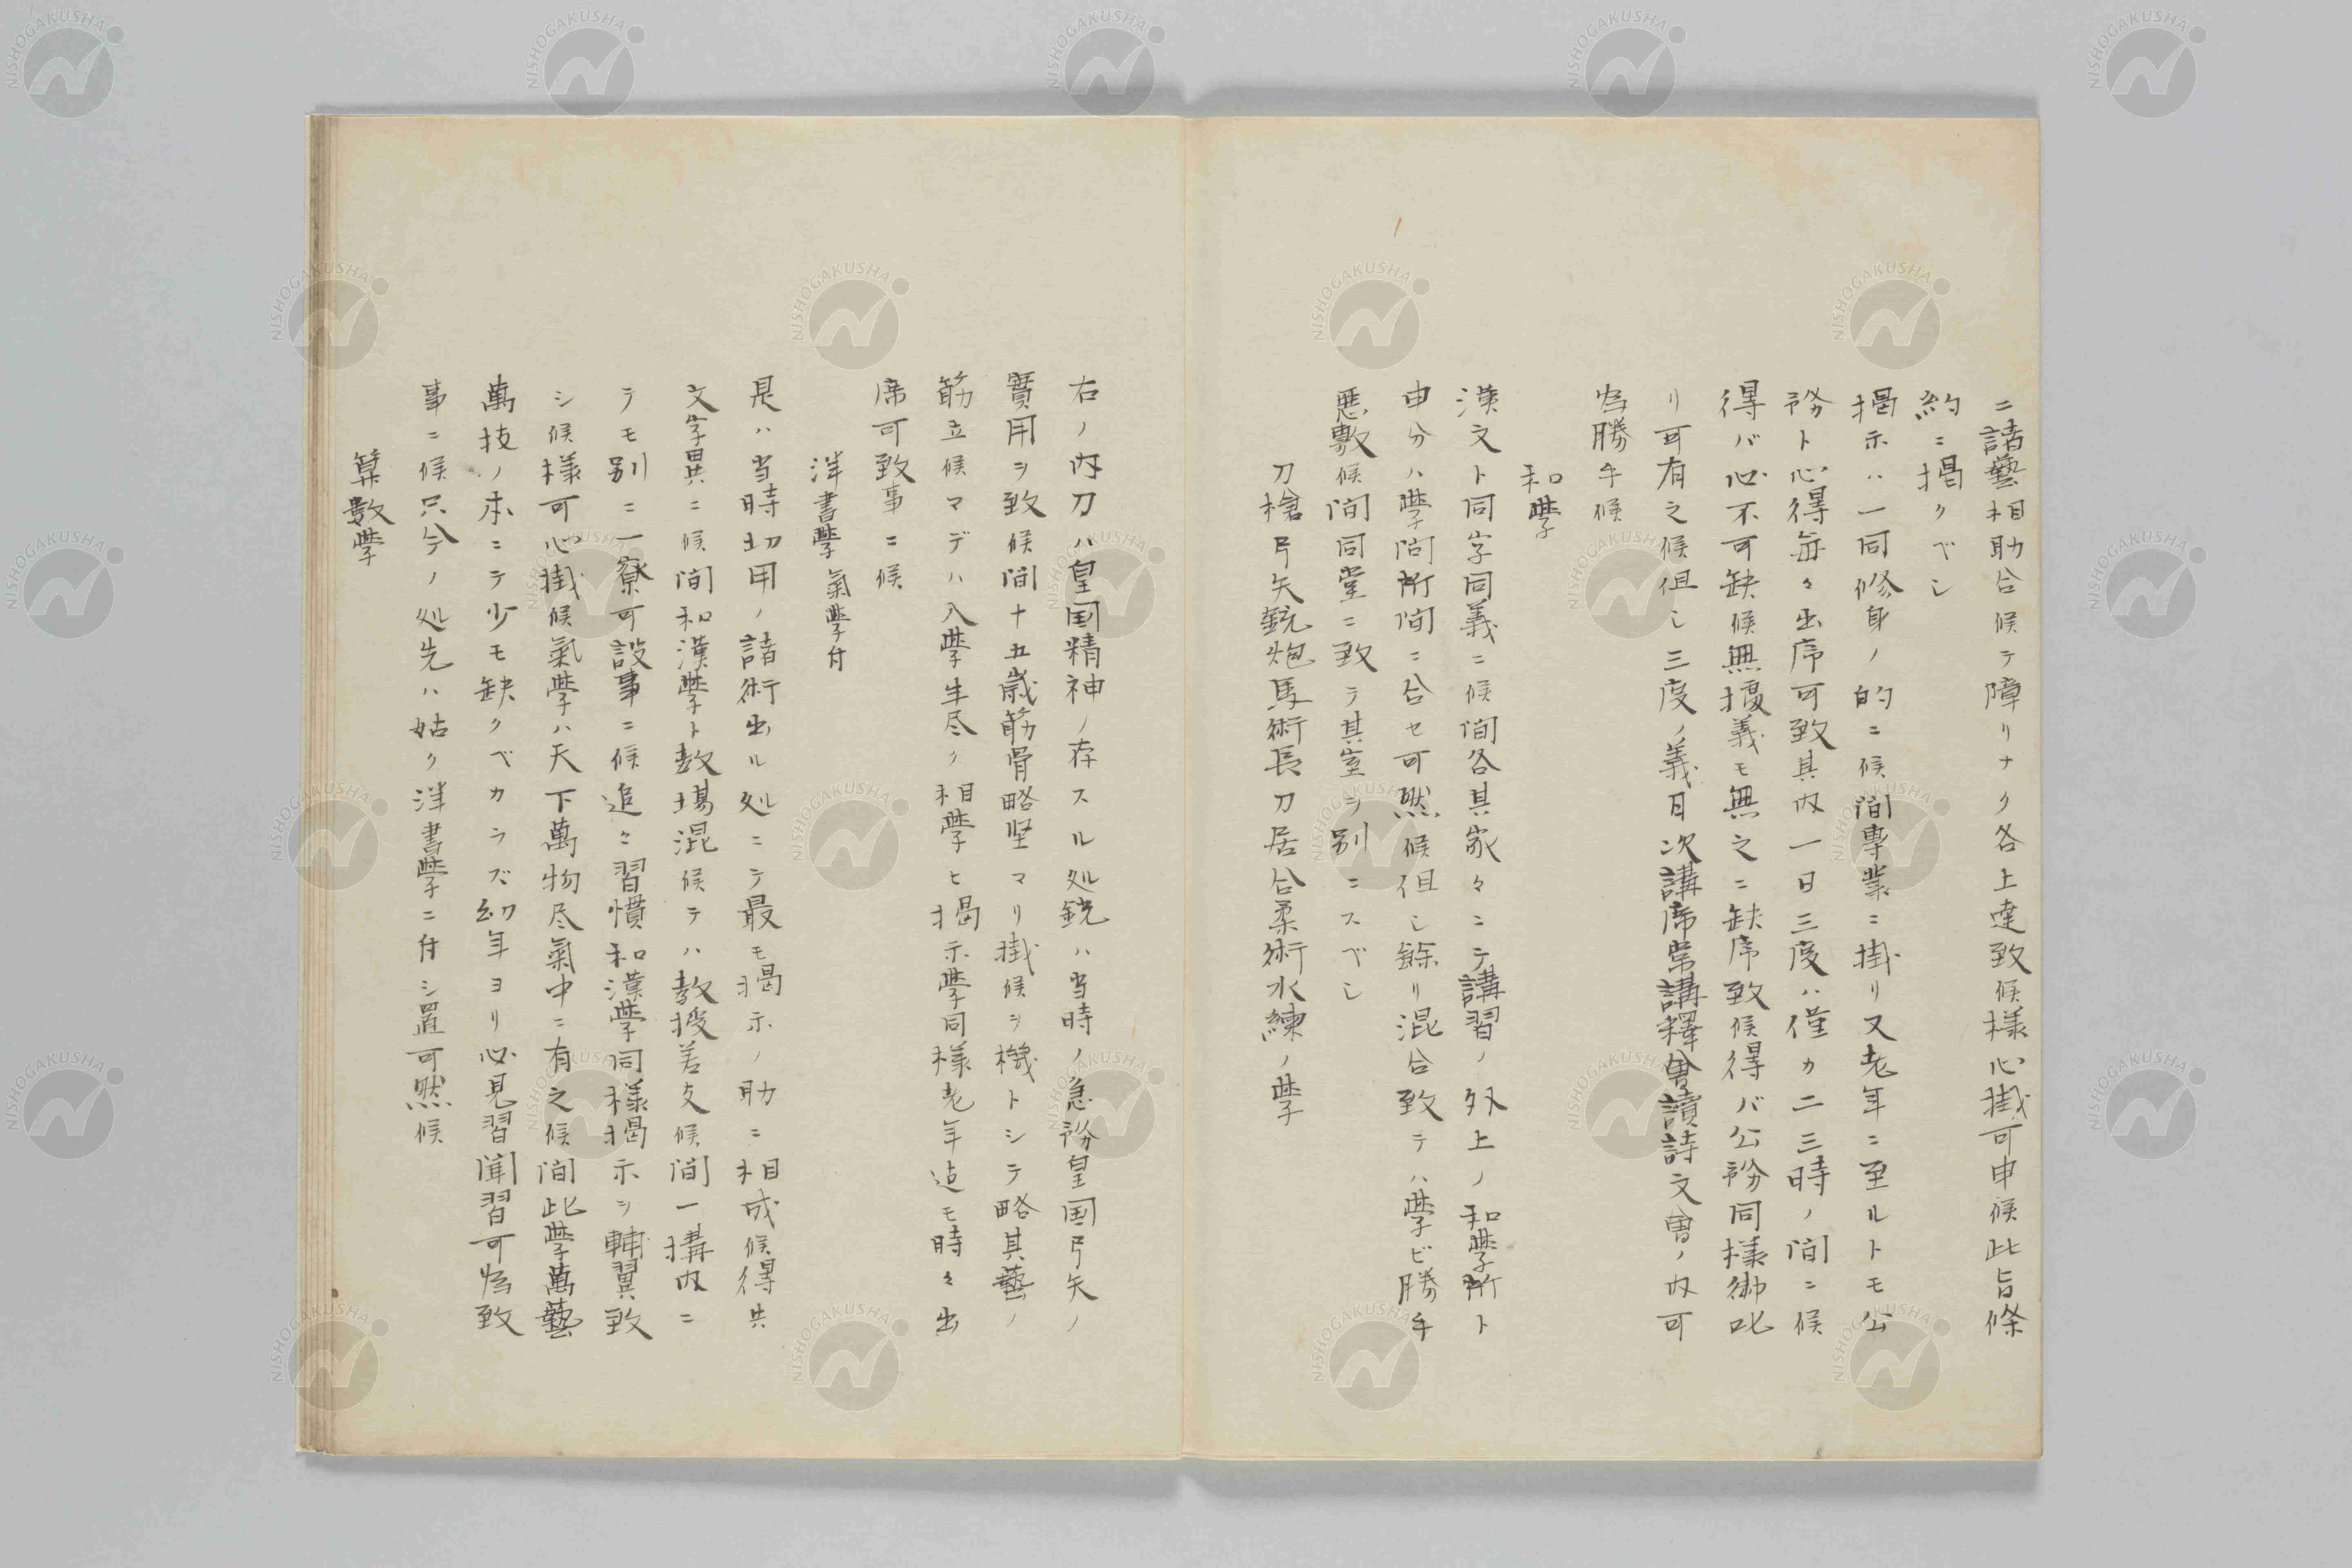 ニ諸藝相助合候テ障リナク各上達致候樣心掛可申候此旨條
約ニ掲クベシ
掲示ハ一同修身ノ的ニ候間專業ニ掛リ又老年ニ至ルトモ公
務ト心得毎々出席可致其内一日三度ハ僅カ二三時ノ間ニ候
得バ心不可缺候無據義モ無之ニ缺席致候得バ公務同樣御叱
リ可有之候但シ三度ノ義日次講席常講釋會讀詩文會ノ内可
為勝手候
和學
漢文ト同字同義ニ候間各其家々ニテ講習ノ外上ノ和學所ト
申分ハ學問所間ニ合セ可然候但シ餘リ混合致テハ學ビ勝手
悪敷候間同堂ニ致テ其室ヲ別ニスベシ
刀槍弓矢銃炮馬術長刀居合柔術水練ノ學
右ノ内刀ハ皇国精神ノ存スル処銃ハ当時ノ急務皇国弓矢ノ
實用ヲ致候間十五歳筋骨略堅マリ掛候ヲ機トシテ略其藝ノ
筋立候マデハ入學生尽ク相學ヒ掲示學同樣老年迠モ時々出
席可致事ニ候
洋書學 氣學付
是ハ当時切用ノ諸術出ル処ニテ最モ掲示ノ助ニ相成候得共
文字異ニ候間和漢學ト教場混候テハ教授差支候間一構内ニ
テモ別ニ一寮可設事ニ候追々習慣和漢學同樣掲示ヲ輔翼致
シ候樣可心掛候氣學ハ天下萬物尽氣中ニ有之候間此學萬藝
萬技ノ本ニテ少モ缺クベカラズ幼年ヨリ必見習聞習可為致
事ニ候只今ノ処先ハ姑ク洋書學ニ付シ置可然候
算數學
NISHOGAKUSHA